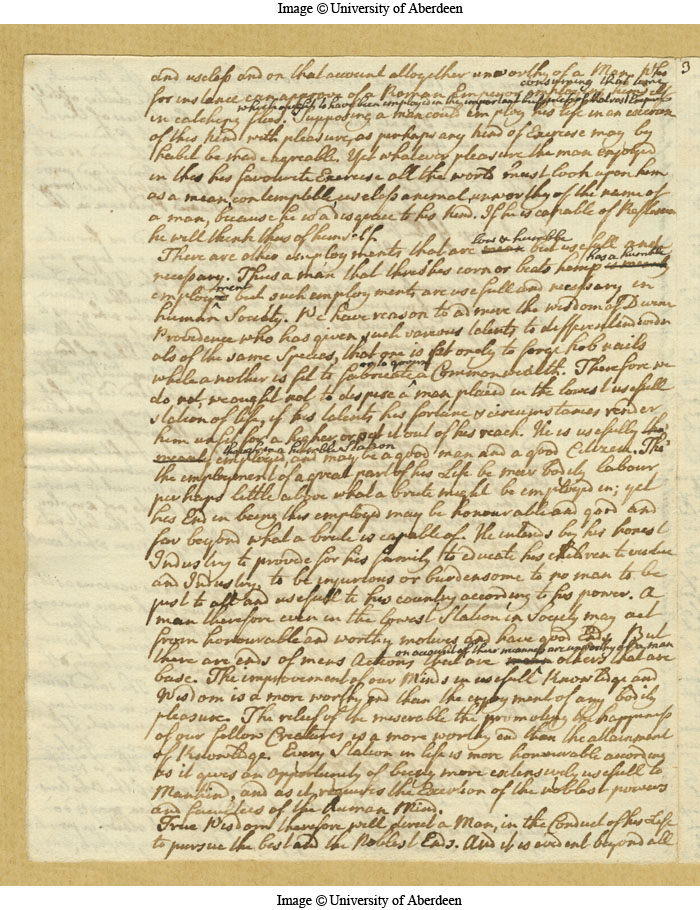 Image © University of Aberdeen
3
and useless and on that account alltogether unworthy of a Man. Who
consuming that time
for instance can approve of a Roman Emperor employing himself
which ought to have been employed in the important business of that vast Empire
in catching flies. Supposing a man could employ his life in an exercise
of this kind with pleasure, as perhaps any kind of Exercise may by
habit be made agreable. Yet whatever pleasure the man enjoyed
in this his favourite Exercise all the world must look upon him
as a mean, contemptible useless animal, unworthy of the name of
a man, because he is a disgrace to his kind. If he is capable of Reflexion
he will think thus of himself.
low & humble
There are other employments that are mean but usefull and
has a humble
necessary. Thus a man that threshes corn or beats hemp is meanly
ment
employed but such employments are usefull and necessary in
human Society. We have reason to admire the wisdom of Divine
Providence who has given such various talents to different individu
als of the same Species, that one is fit onely to forge hob nails
or to govern
while another is fit to fabricate a Commonwealth. Therefore we
do not, we ought not to despise a man placed in the lowest usefull
station of life, if his talents his fortune & circumstances render
him unfit for a higher, or put it out of his reach. He is usefully tho
though in a humble Station
meanly employed, and may be a good man and a good Citizen. Tho
the employment of a great part of his Life be meer bodily labour
perhaps little above what a brute might be employed in; yet
his End in being thus employed may be honourable and good and
far beyond what a brute is capable of. He intends by his honest
Industry to provide for his family to educate his children to virtue
and Industry, to be injurious or burdensome to no man to be
just to all and usefull to his country according to his power. A
man therefore even in the lowest Station in Society may act
from honourable and worthy motives and have good Ends. But
on account of their meanness are unworthy of a man
there are ends of mens Actions that are others that are
base. The improvement of our Minds in usefull Knowledge and
Wisdom is a more worthy end than the enjoyment of any bodily
pleasure. The relief of the miserable the promoting the happiness
of our fellow Creatures is a more worthy end than the attainment
of Knowledge. Every Station in life is more honourable according
as it gives an opportunity of being more extensively usefull to
Mankind, and as it requires the Exertion of the noblest powers
and faculties of the Human Mind.
True Wisdom therefore will direct a Man, in the Conduct of his Life
to pursue the best and the Noblest Ends. And it is evident beyond all
Image © University of Aberdeen